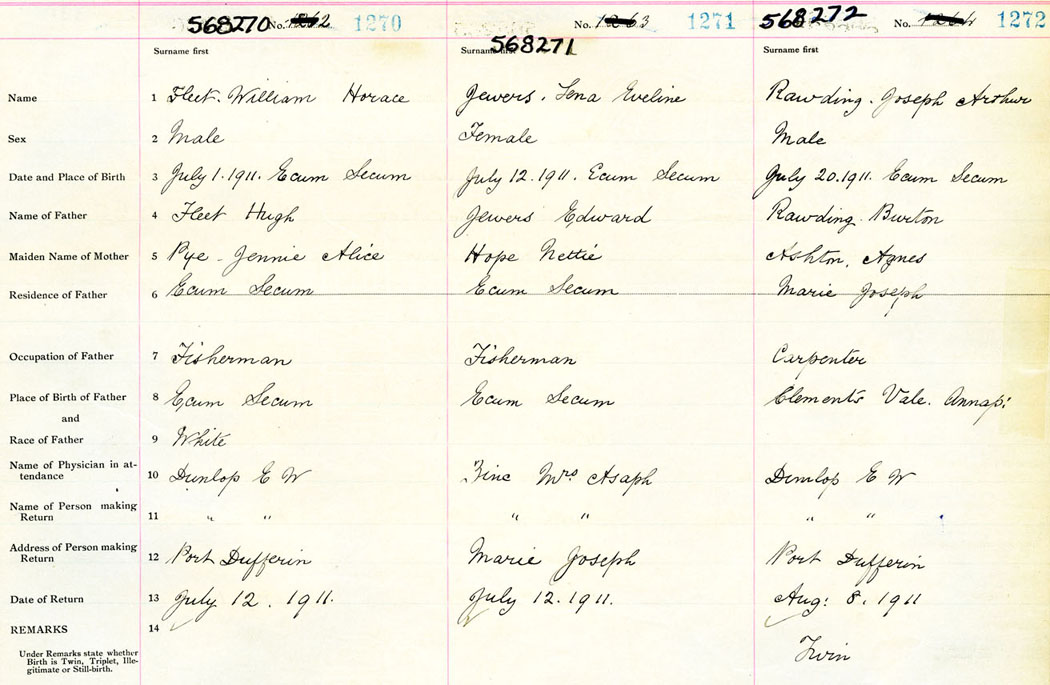 568270 No. 1262 1270 No. 1263 1271 568272 No. 1264 1272
Surname first 568271 Surname first Surname first
Name 1 Fleet. William Horace Jewers. Lena Eveline Rawding. Joseph Arthur
Sex 2 Male Female Male
Date and Place of Birth 3 July 1. 1911. Ecum Secum July 12. 1911. Ecum Secum July 20. 1911. Ecum Secum
Name of Father 4 Fleet Hugh Jewers Edward Rawding. Burton
Maiden Name of Mother 5 Pye - Jennie Alice Hope Nettie Ashton, Agnes
Residence of Father 6 Ecum Secum Ecum Secum Marie Joseph
Occupation of Father 7 Fisherman Fisherman Carpenter
Place of Birth of Father 8 Ecum Secum Ecum Secum Clements Vale. Annap:
and
Race of Father 9 White
Name of Physician in at-
tendance 10 Dunlop E W Mrs Asaph Dunlop E W
Name of Person making
Return 11 " " " " " "
Address of Person making
Return 12 Port Dufferin Marie Joseph Port Dufferin
Date of Return 13 July 12. 1911. July 12. 1911. Aug: 8. 1911
REMARKS 14
Under Remarks state whether
Birth is Twin, Triplet, Ille-
gitimate or Still-birth.
Twin